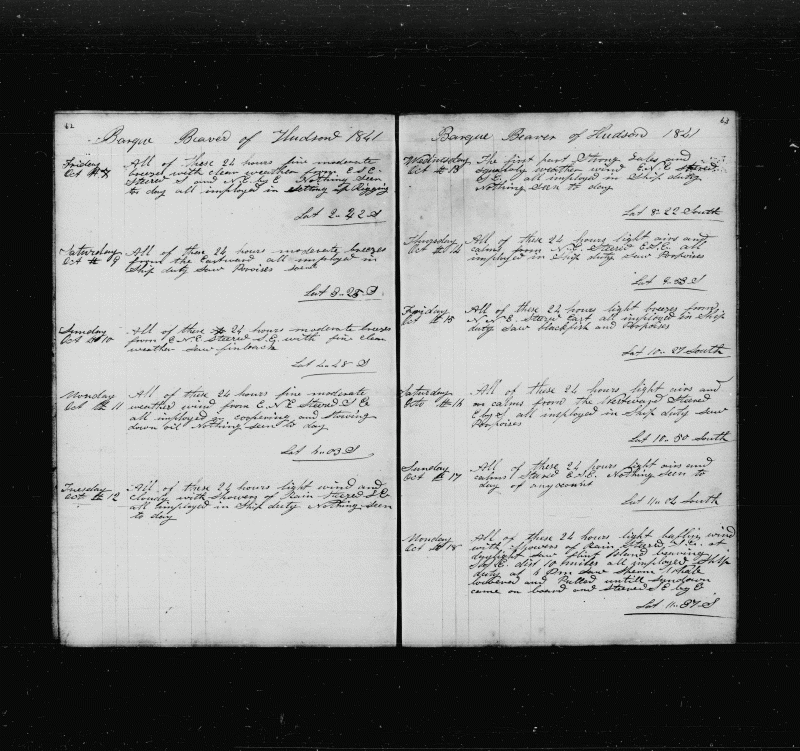 62
Barque Beaver of Hudson 1841
Friday All of these 24 hours fine moderate
Oct # 8 breezes with clear weather from E.S.E.
Steered S and S. E. by E Nothing Seen
to day all imployed in Setting up Rigging
Lat 2-22 S
Saturday All of these 24 hours moderate breezes
Oct # 9 from the Eastward all imployed in
Ship duty Saw Porpoises
Lat 3-25 S
Sunday All of these 24 hours moderate breezes
Oct # 10 from E.N.E Steered S.E. with fine clear
weather Saw finback
Lat 4-28 S
Monday All of these 24 hours fine moderate
Oct # 11 weather wind from E.N.E Steered S E
all imployed in coopering and Stowing
down oil Nothing seen to day
Lat 4-03 S
Tuesday All of these 24 hours light wind and
Oct # 12 cloudy with Showers of Rain Steered S.E
all imployed in Ship duty Nothing seen
to day
63
Barque Beaver of Hudson 1841
Wednesday The first part Strong Gales and
Oct # 13 Squally weather wind E.N.E Steered
S.E. all imployed in Ship duty
Nothing Seen to day
Lat 8-22 South
Thursday All of these 24 hours light airs and
Oct # 14 calms from N.E Steered E.S.E. all
imployed in Ship duty Saw Porpoises
Lat 9-53 S
Friday All of these 24 hours light breezes from
Oct # 15 N.N.E. Steered East all imployed in Ship
duty Saw blackfish and Porpoises
Lat 10-27 South
Saturday All of these 24 hours light airs and
Octo # 16 calms from the Westward Steered
E by S. all imployed in Ship duty Saw
Porpoises
Lat 10-50 South
Sunday All of these 24 hours light airs and
Oct # 17 calms Steered E.S.E. Nothing Seen to
day of any
Lat 11-04 South
Monday All of these 24 hours light bafling wind
Oct # 18 with Showers of Rain Steered S.E. at
daylight Saw Flint Island bearing
dist 10 miles all imployed Ship
duty at 4 Pm Saw Sperm Whale
lowered and Pulled untill Syndown
came on board and Steered S.E by E
Lat 11-37 S